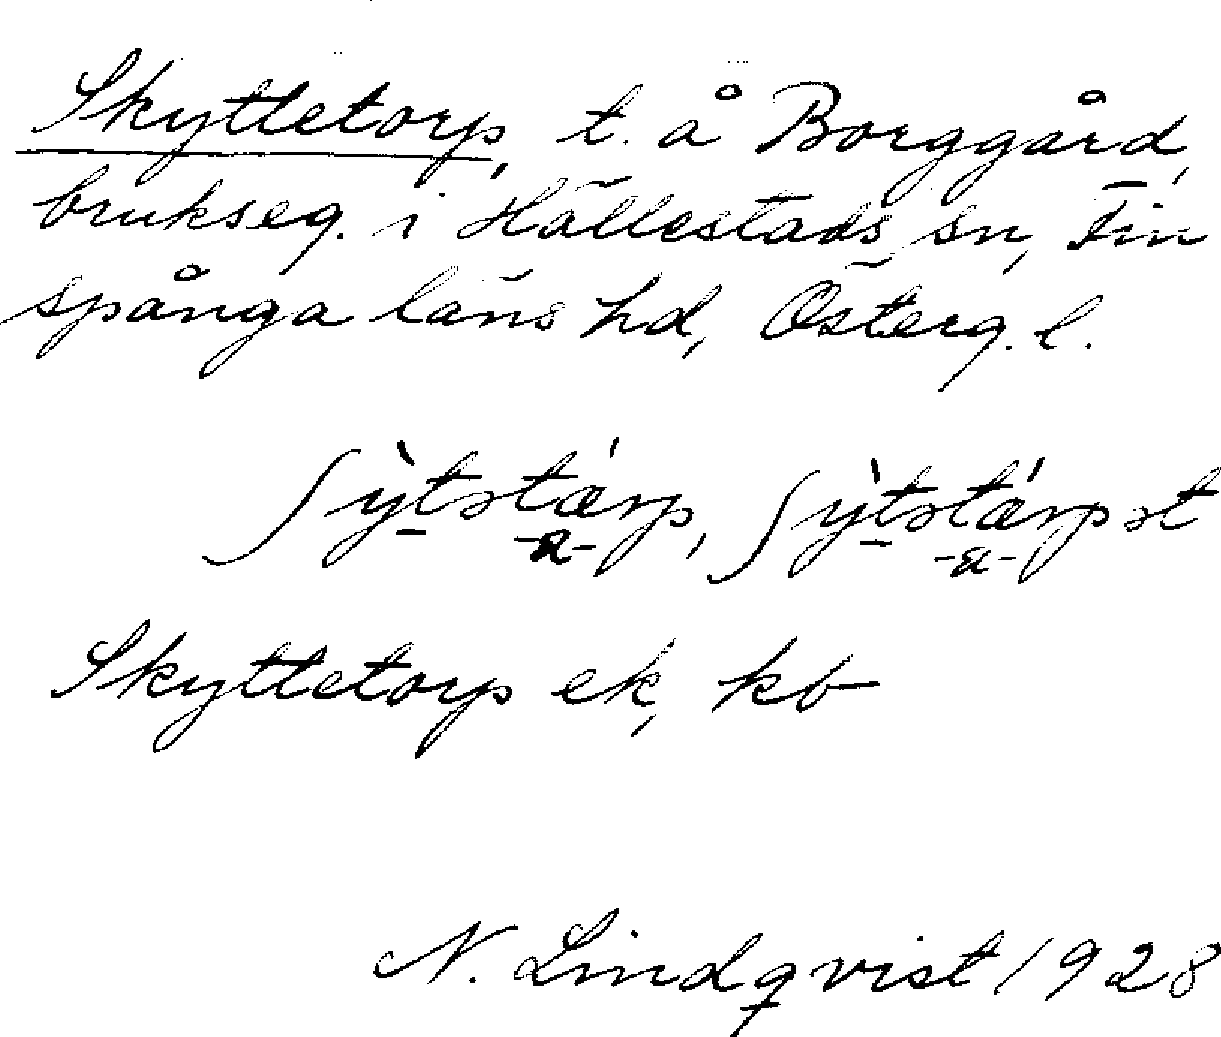 Skyttetorp, t. å Borggård,
brukseg. i Hällestads sn, Fin
spånga läns hd, Österg. l.
ʃỳ̖tətærp, ʃỳtətærpət
-a- -a-
Skyttetorp ek, kb
N. Lindqvist 1928